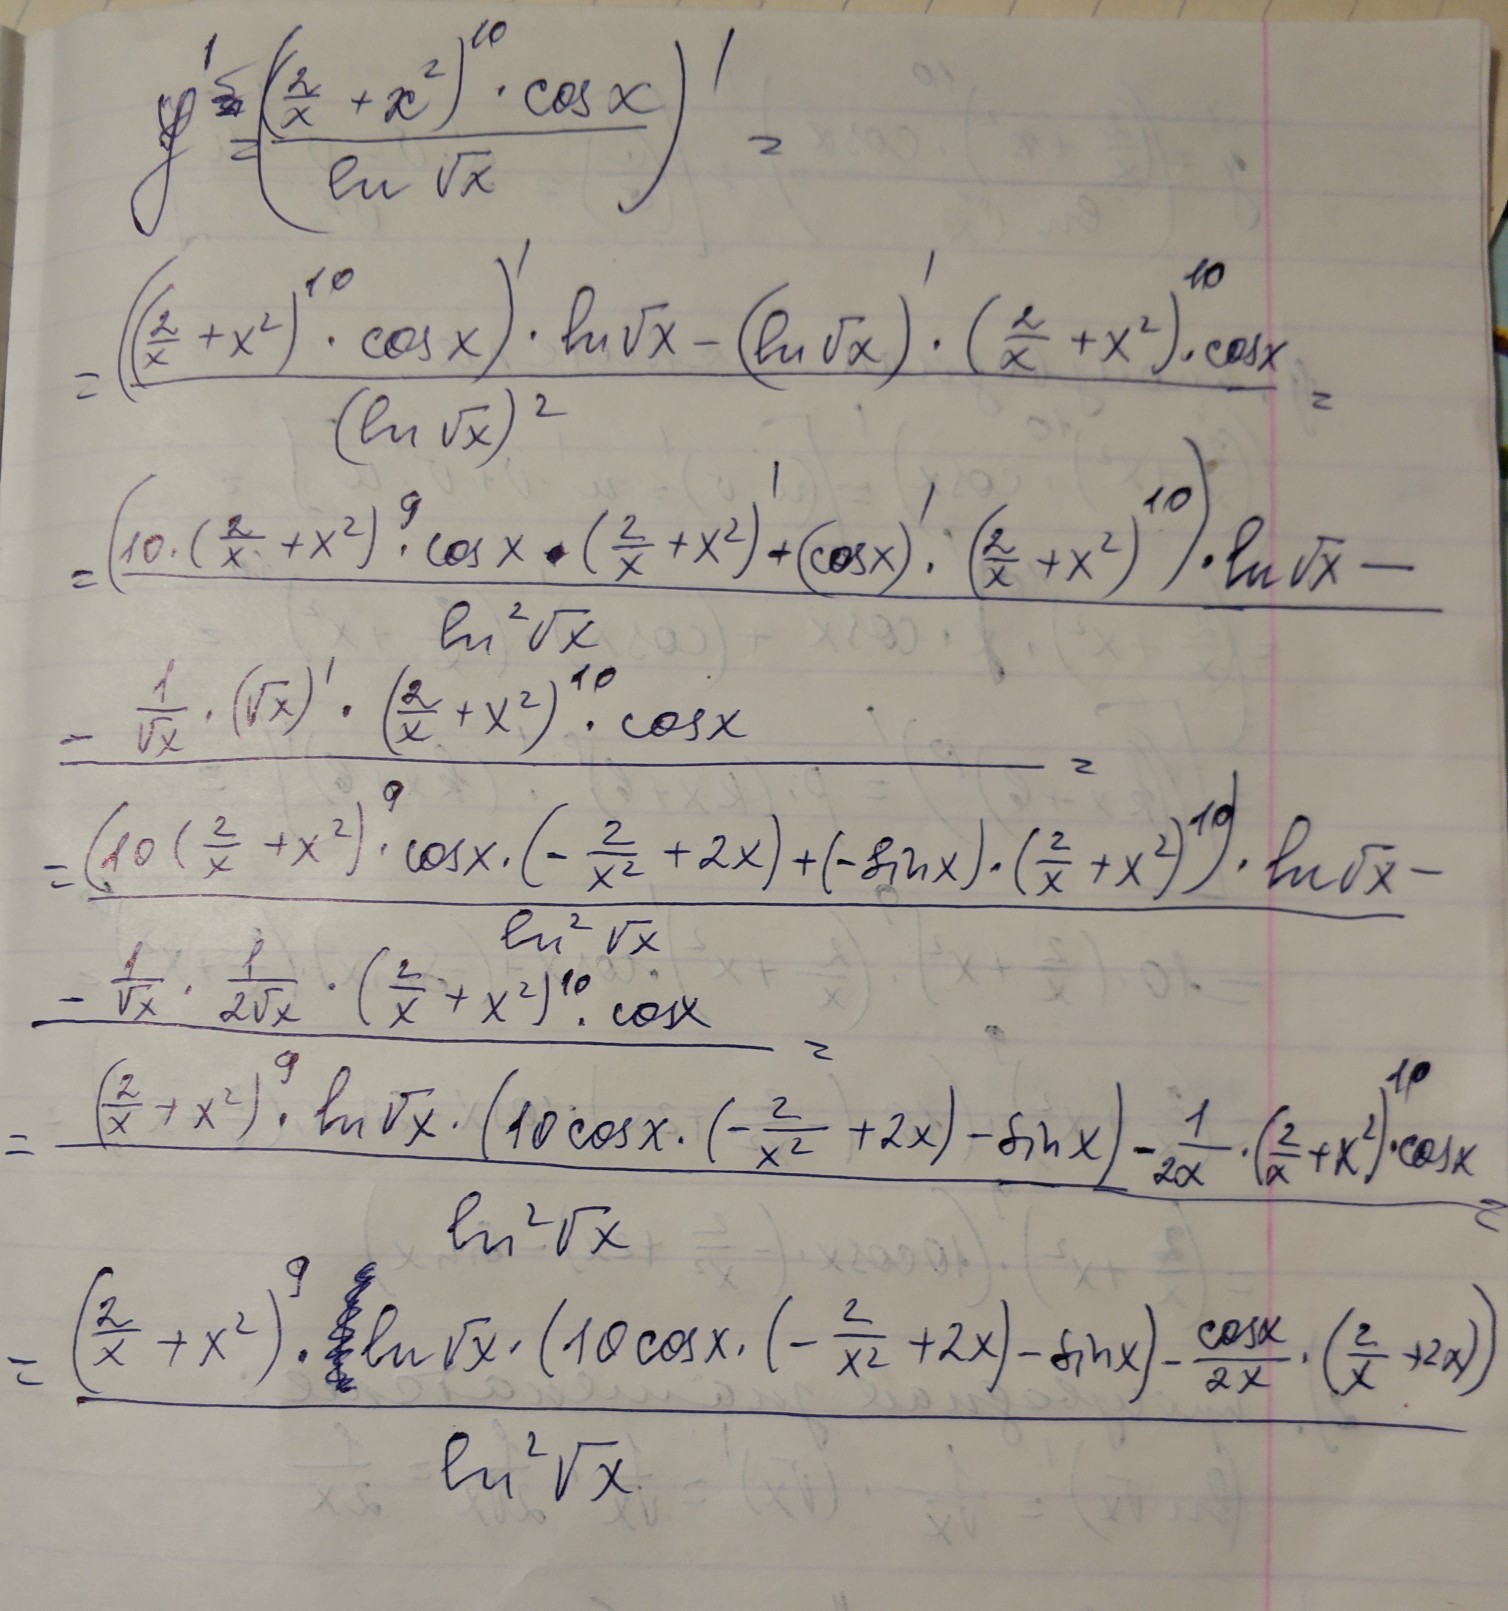 y' = ((2/x + x²)¹⁰ · cos x / ln √x)' =
= (((2/x + x²)¹⁰ · cos x)' · ln √x − (ln √x)' · (2/x + x²)¹⁰ · cos x) / (ln √x)² =
= (10 · (2/x + x²)⁹ · cos x · (2/x + x²)' + (cos x)' · (2/x + x²)¹⁰) · ln √x −
ln² √x
− 1/√x · (√x)' · (2/x + x²)¹⁰ · cos x =
= (10 (2/x + x²)⁹ · cos x · (− 2/x² + 2x) + (− sin x) · (2/x + x²)¹⁰) · ln √x −
ln² √x
− 1/√x · 1/2√x · (2/x + x²)¹⁰ · cos x =
= (2/x + x²)⁹ · ln √x · (10 cos x · (− 2/x² + 2x) − sin x) − 1/2x · (2/x + x²)¹⁰ · cos x =
ln² √x
= (2/x + x²)⁹ · ln √x · (10 cos x · (− 2/x² + 2x) − sin x) − cos x/2x · (2/x + 2x))
ln² √x